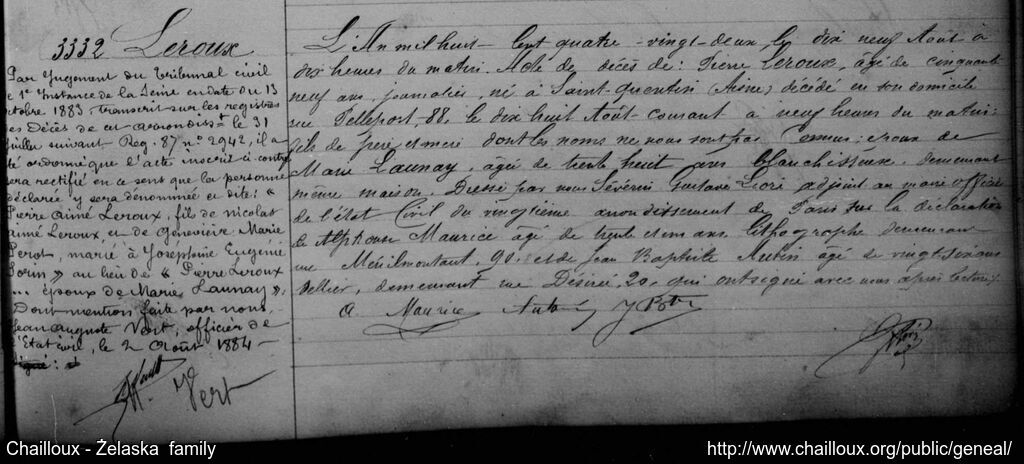 3332 Leroux
Par jugement du Tribunal civil
de 1ère Instance de la Seine en date du 13
octobre 1883, transcrit sur les registres
des Décès de cet arrondist le 31
juillet suivant Reg. 87 n° 2942, il a
été ordonné que l'acte inscrit ci-contre
sera rectifié en ce sens que la personne
déclarée y sera dénommée et dite: "
Pierre Aimé Leroux, fils de nicolas
aimé Leroux, et de Geneviève Marie
Perot, marié à Joséphine Eugénie
" au lieu de " Pierre Leroux
... époux de Marie Launay ",
Dont mention faite par nous,
Jean Auguste Vert, officier de
l'Etat civil, le 2 Août 1884 -
signé:
Vert
L'An mil huit cent quatre-vingt-deux, le dix neuf Août à
dix heures du matin. Acte de décès de: Pierre Leroux, âgé de cinquante
neuf ans, journalier, né à Saint-Quentin (Aisne) décédé en son domicile
rue Pelleport, 88, le dix huit Août courant à neuf heures du matin;
fils de père et mère dont les noms ne nous sont pas connus; époux de
Marie Launay, âgée de trente huit ans, blanchisseuse, demeurant
même maison. Dressé par nous Séverin Gustave adjoint au maire officier
de l'état Civil du vingtième arrondissement de Paris sur la déclaration
de Alphonse Maurice âgé de trente et un ans, lithographe demeurant
rue Ménilmontant, 90, et de Jean Baptiste Aubin âgé de vingt six ans
sellier, demeurant rue Désirée, 20, qui ont signé avec nous après lecture.
A Maurice Aubin J Bte
Chailloux - Żelaska family
http://www.chailloux.org/public/geneal/